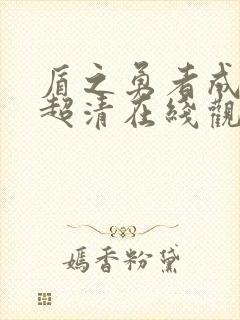 盾之勇者成
超清在綫觀
嫣香粉黛